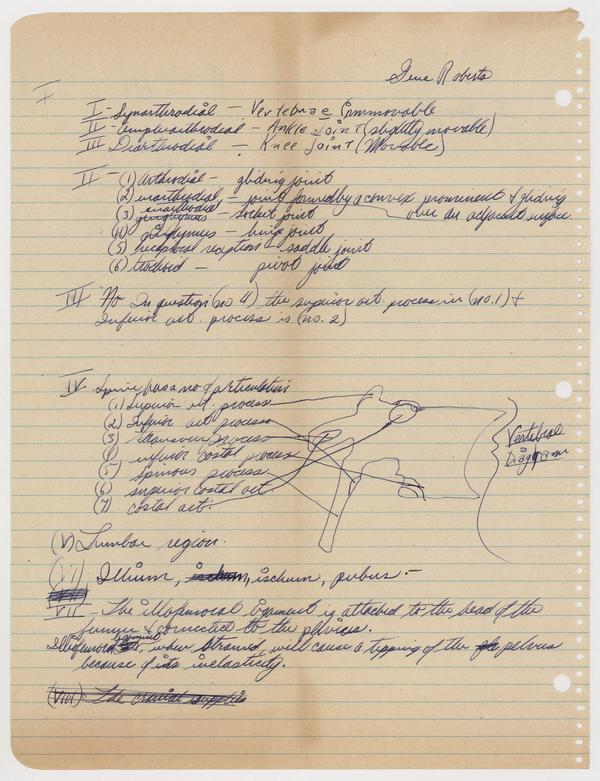 Gene Roberts
I
I- Synarthrodial — Vertebrae Immovable
II- Ampliarthrodial — Ankle Joint (slightly movable)
III Diarthrodial — Knee Joint (Movable)
II- (1) Arthrodial — gliding joint
(2) enarthrodial — joint formed by a convex prominent & gliding
over an adjacent
(3) enarthrodial — socket joint
(4) ginglymus — hinge joint
(5) reciprocal reception — saddle joint
(6) trochoid — pivot joint
III No In question (no 4) the superior art. process in (no. 1) &
Inferior art. process is (no. 2)
IV Spine has a no of articulations
(1) Superior art. process
(2) Inferior art process
(3) transverse process
4 inferior costal process
5 spinous process
(6) superior costal art.
(7) costal art.
Vertebral
Diagram
(V) Lumbar region.
(VI) Illium, ischum, pubus.-
VII - The illofemoral ligament is attached to the head of the
femur & connected to the
ligament
Illiofemoral, when strained, will cause a tipping of the pelvus
because of its inelasticity.
(VIII) The crucial supplies